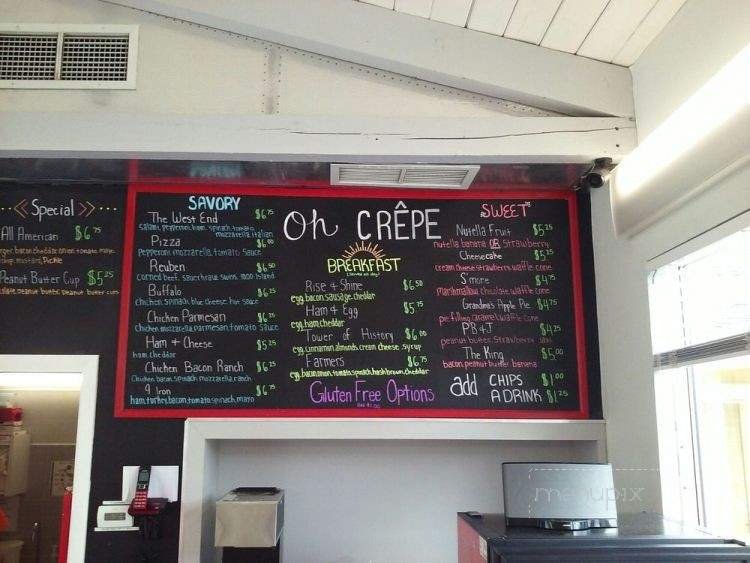 << Special >>
All American $6.75
bacon, cheddar, onion, tomato, mayo
mustard, Pickle
Peanut Butter Cup $5.25
peanut butter, peanut butter cups
SAVORY
The West End $6.75
salami, pepperoni, ham, spinach, tomato
mozzarella, italian
Pizza $6.00
pepperoni, mozzarella, tomato sauce
Reuben $6.50
corned beef, sauerkraut, swiss, 1000 Island
Buffalo $6.25
chicken, spinach, blue cheese, hot sauce
Chicken Parmesan $6.25
chicken, mozzarella, parmesan, tomato sauce
Ham + Cheese $5.25
ham, cheddar
Chicken Bacon Ranch $6.25
Chicken, bacon, spinach, mozzarella, ranch
9 Iron $6.75
ham, turkey, bacon, tomato, spinach, mayo
Oh CRÊPE
BREAKFAST
Rise + Shine $6.50
egg, bacon, sausage, cheddar
Ham + Egg $5.75
egg, ham, cheddar
Tower of History $6.00
egg, cinnamon, almonds, cream cheese, syrup
Farmers $6.75
egg, bacon, onion, tomato, spinach, hash brown, cheddar
Gluten Free Options
SWEET
Nutella Fruit $5.25
nutella banana OR strawberry
Cheesecake $5.25
cream cheese, strawberry, waffle cone
S'more $4.75
marshmallow, chocolate, waffle cone
Grandma's Apple Pie $4.75
pie filling, caramel, waffle cone
PB + J $4.25
peanut butter, strawberry jam
The King $5.00
bacon, peanut butter, banana
add CHIPS $1.00
A DRINK $1.25
menupix